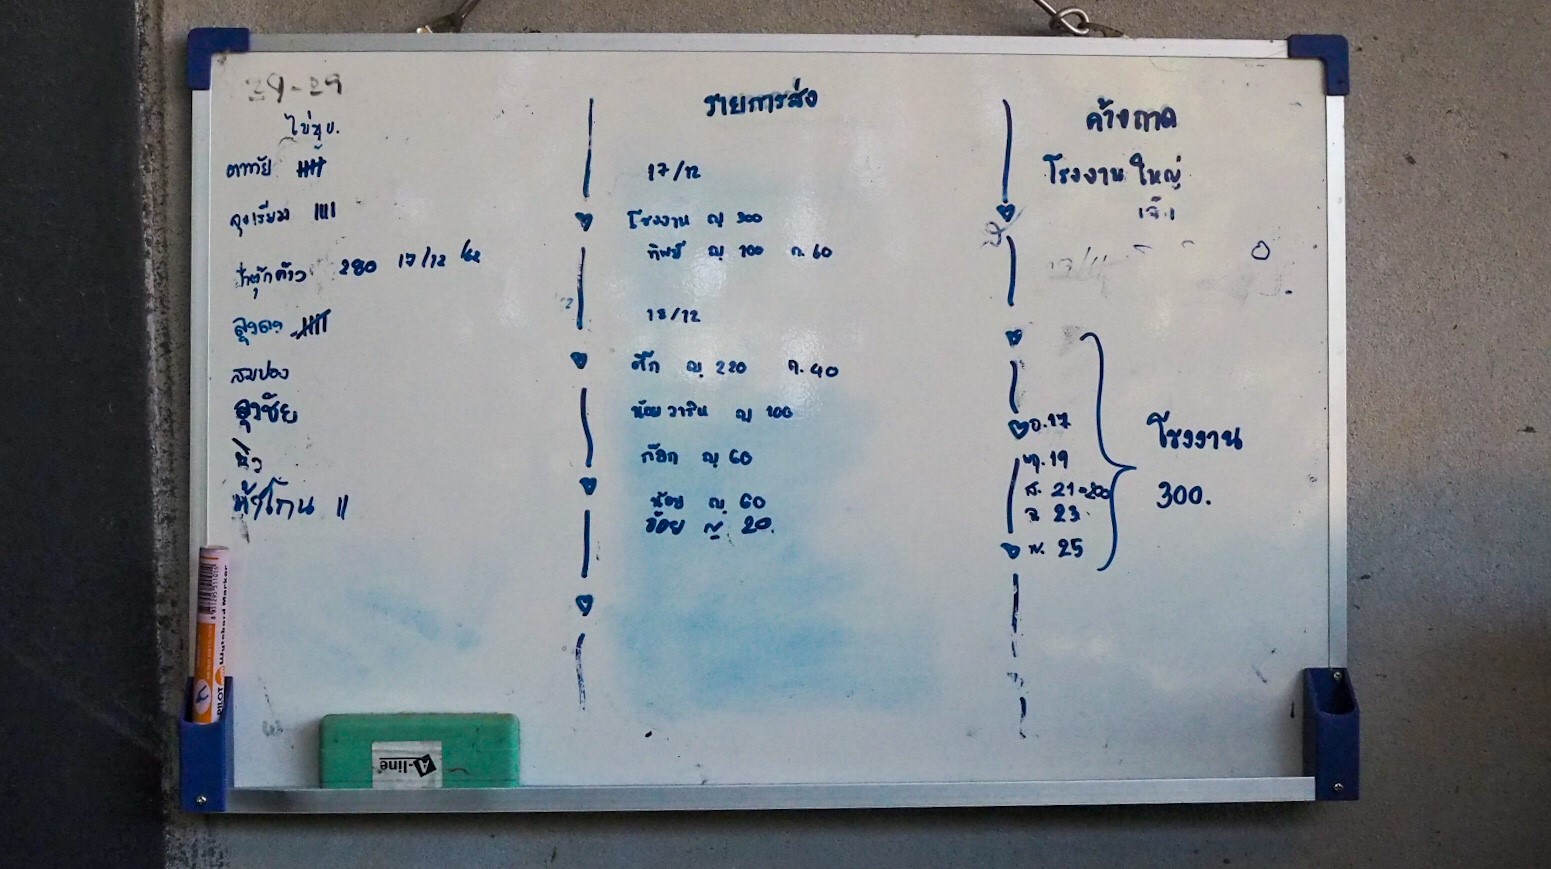 29-29
ไข่ชุบ.
ตาทวัย
ลุงเรียง
280 17/12 /62
ลุงดง
สมปอง
สุรชัย
นิว
II
รายการส่ง
17/12
โรงงาน ญ 300
ทิพย์ ญ 100 ก. 60
18/12
ตึ๊ก ญ 220 ก. 40
น้อย วาริน ญ 100
ก๊อก ญ 60
น้อย ญ 60
อ้อย ญ 20.
ค้างถาด
โรงงาน ใหญ่
เจ๊
0
อ. 17
พฤ. 19
ส. 21=200
จ 23
พ. 25
โรงงาน
300.
PILOT Wytebord Marker
A-line